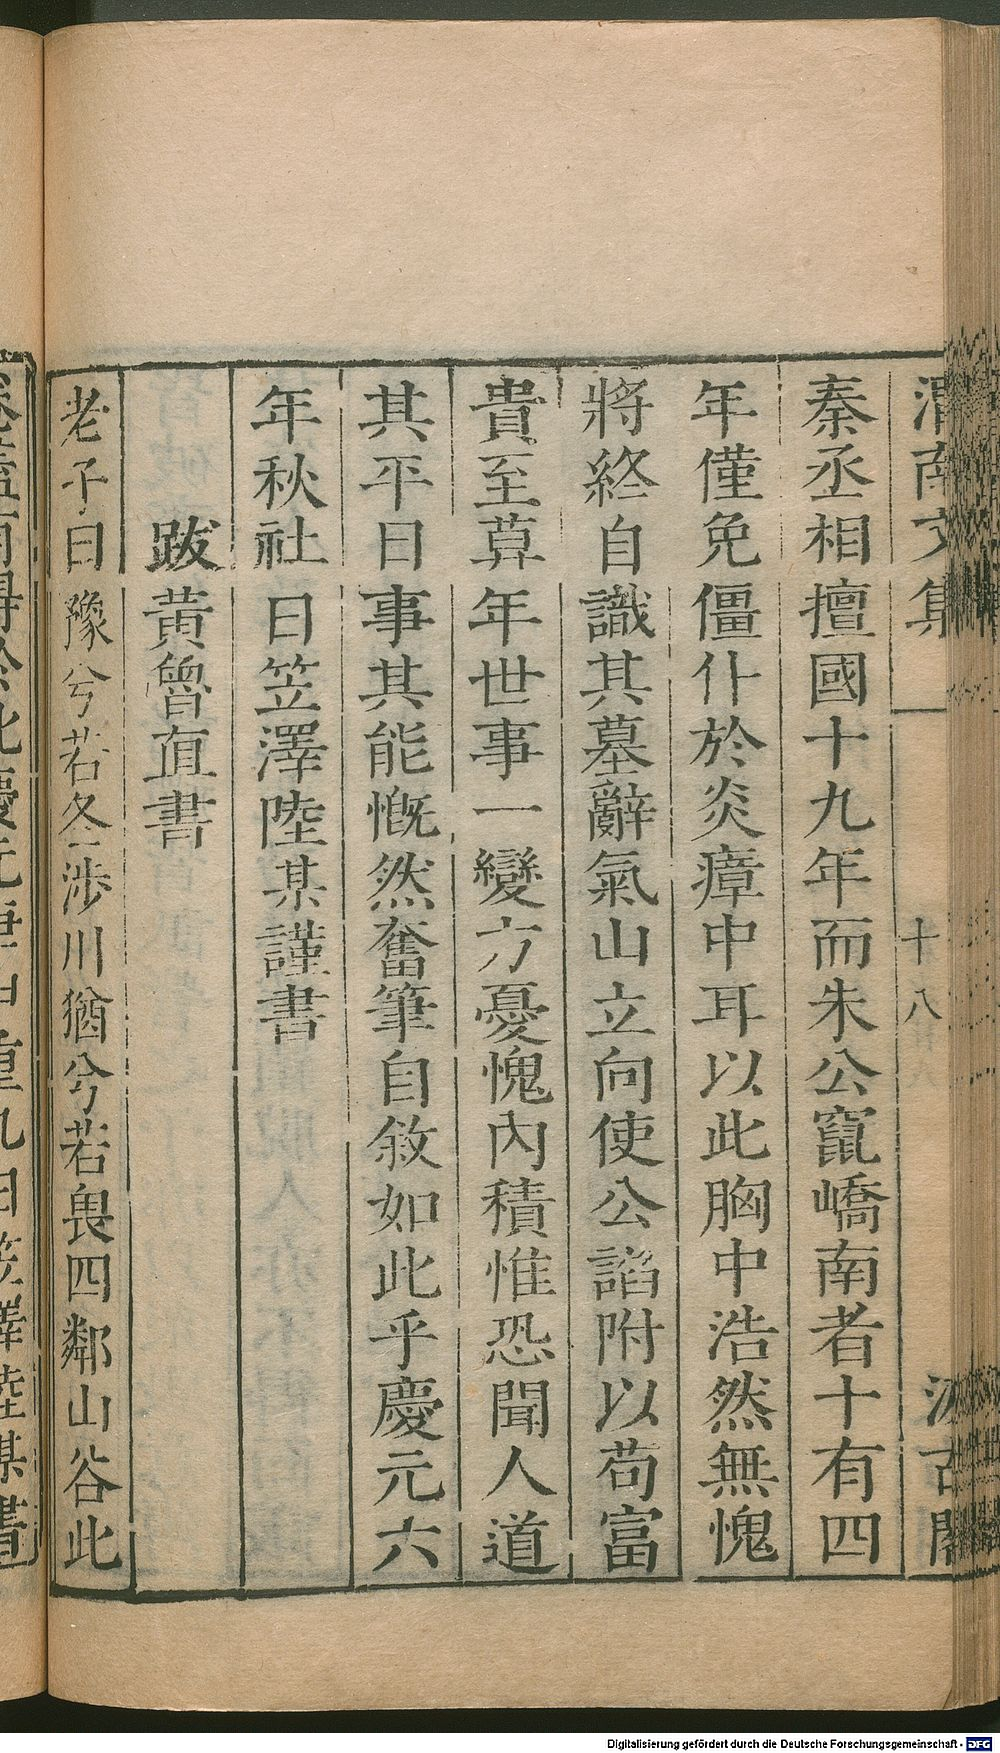 渭南文集
十八
汲古閣
秦丞相擅國十九年而朱公竄嶠南者十有四
年僅免僵仆於炎瘴中耳以此胸中浩然無愧
將終自識其墓辭氣山立向使公諂附以苟富
貴至莫年世事一變方憂愧內積惟恐聞人道
其平日事其能慨然奮筆自敘如此乎慶元六
年秋社日笠澤陸某謹書
跋黃魯直書
老子曰豫兮若冬涉川猶兮若畏四鄰山谷此
卷蓋有得於此慶元庚申重九日笠澤陸某書
Digitalisierung gefördert durch die Deutsche Forschungsgemeinschaft - DFG